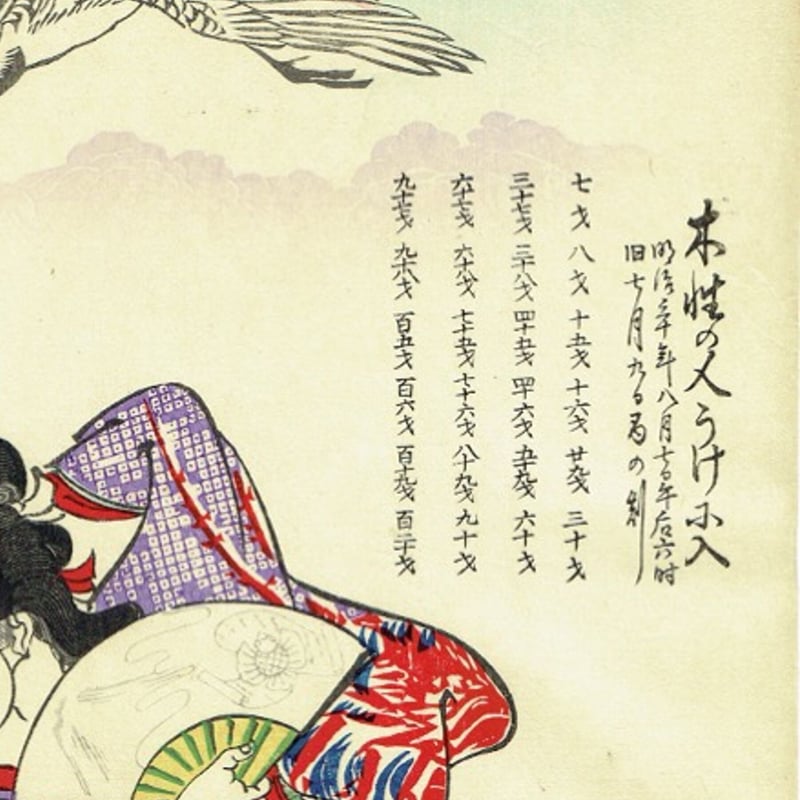 木性の人うけに入
明治三十年八月七日午后六時
旧七月九日酉の刻
七才 八才 十五才 十六才 廿九才 三十才
三十七才 三十八才 四十五才 四十六才 五十九才 六十才
六十七才 六十八才 七十五才 七十六才 八十九才 九十才
九十七才 九十八才 百五才 百六才 百十九才 百二十才